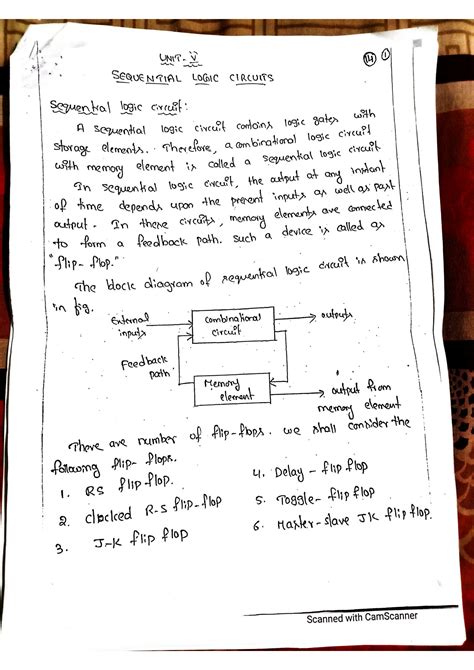 UNIT-V
14 1
SEQUENTIAL LOGIC CIRCUITS
Sequential logic circuit:
A sequential logic circuit contains logic gates with
storage elements. Therefore, a combinational logic circuit
with memory element is called a sequential logic circuit
In sequential logic circuit, the output at any instant
of time depends upon the present inputs as well as past
output. In these circuits, memory elements are connected
to form a feedback path. Such a device is called as
"flip-flop."
The block diagram of sequential logic circuit is shown
in fig.
External
inputs
Combinational
circuit
outputs
Feedback
path
Memory
element
output from
memory element
There are number of flip-flops. we shall consider the
following flip-flops.
1. RS flip flop.
2. clocked R-S flip-flop
3. J-K flip flop
4. Delay - flip flop
5. Toggle- flip flop
6. Master-slave JK flip flop.
Scanned with CamScanner